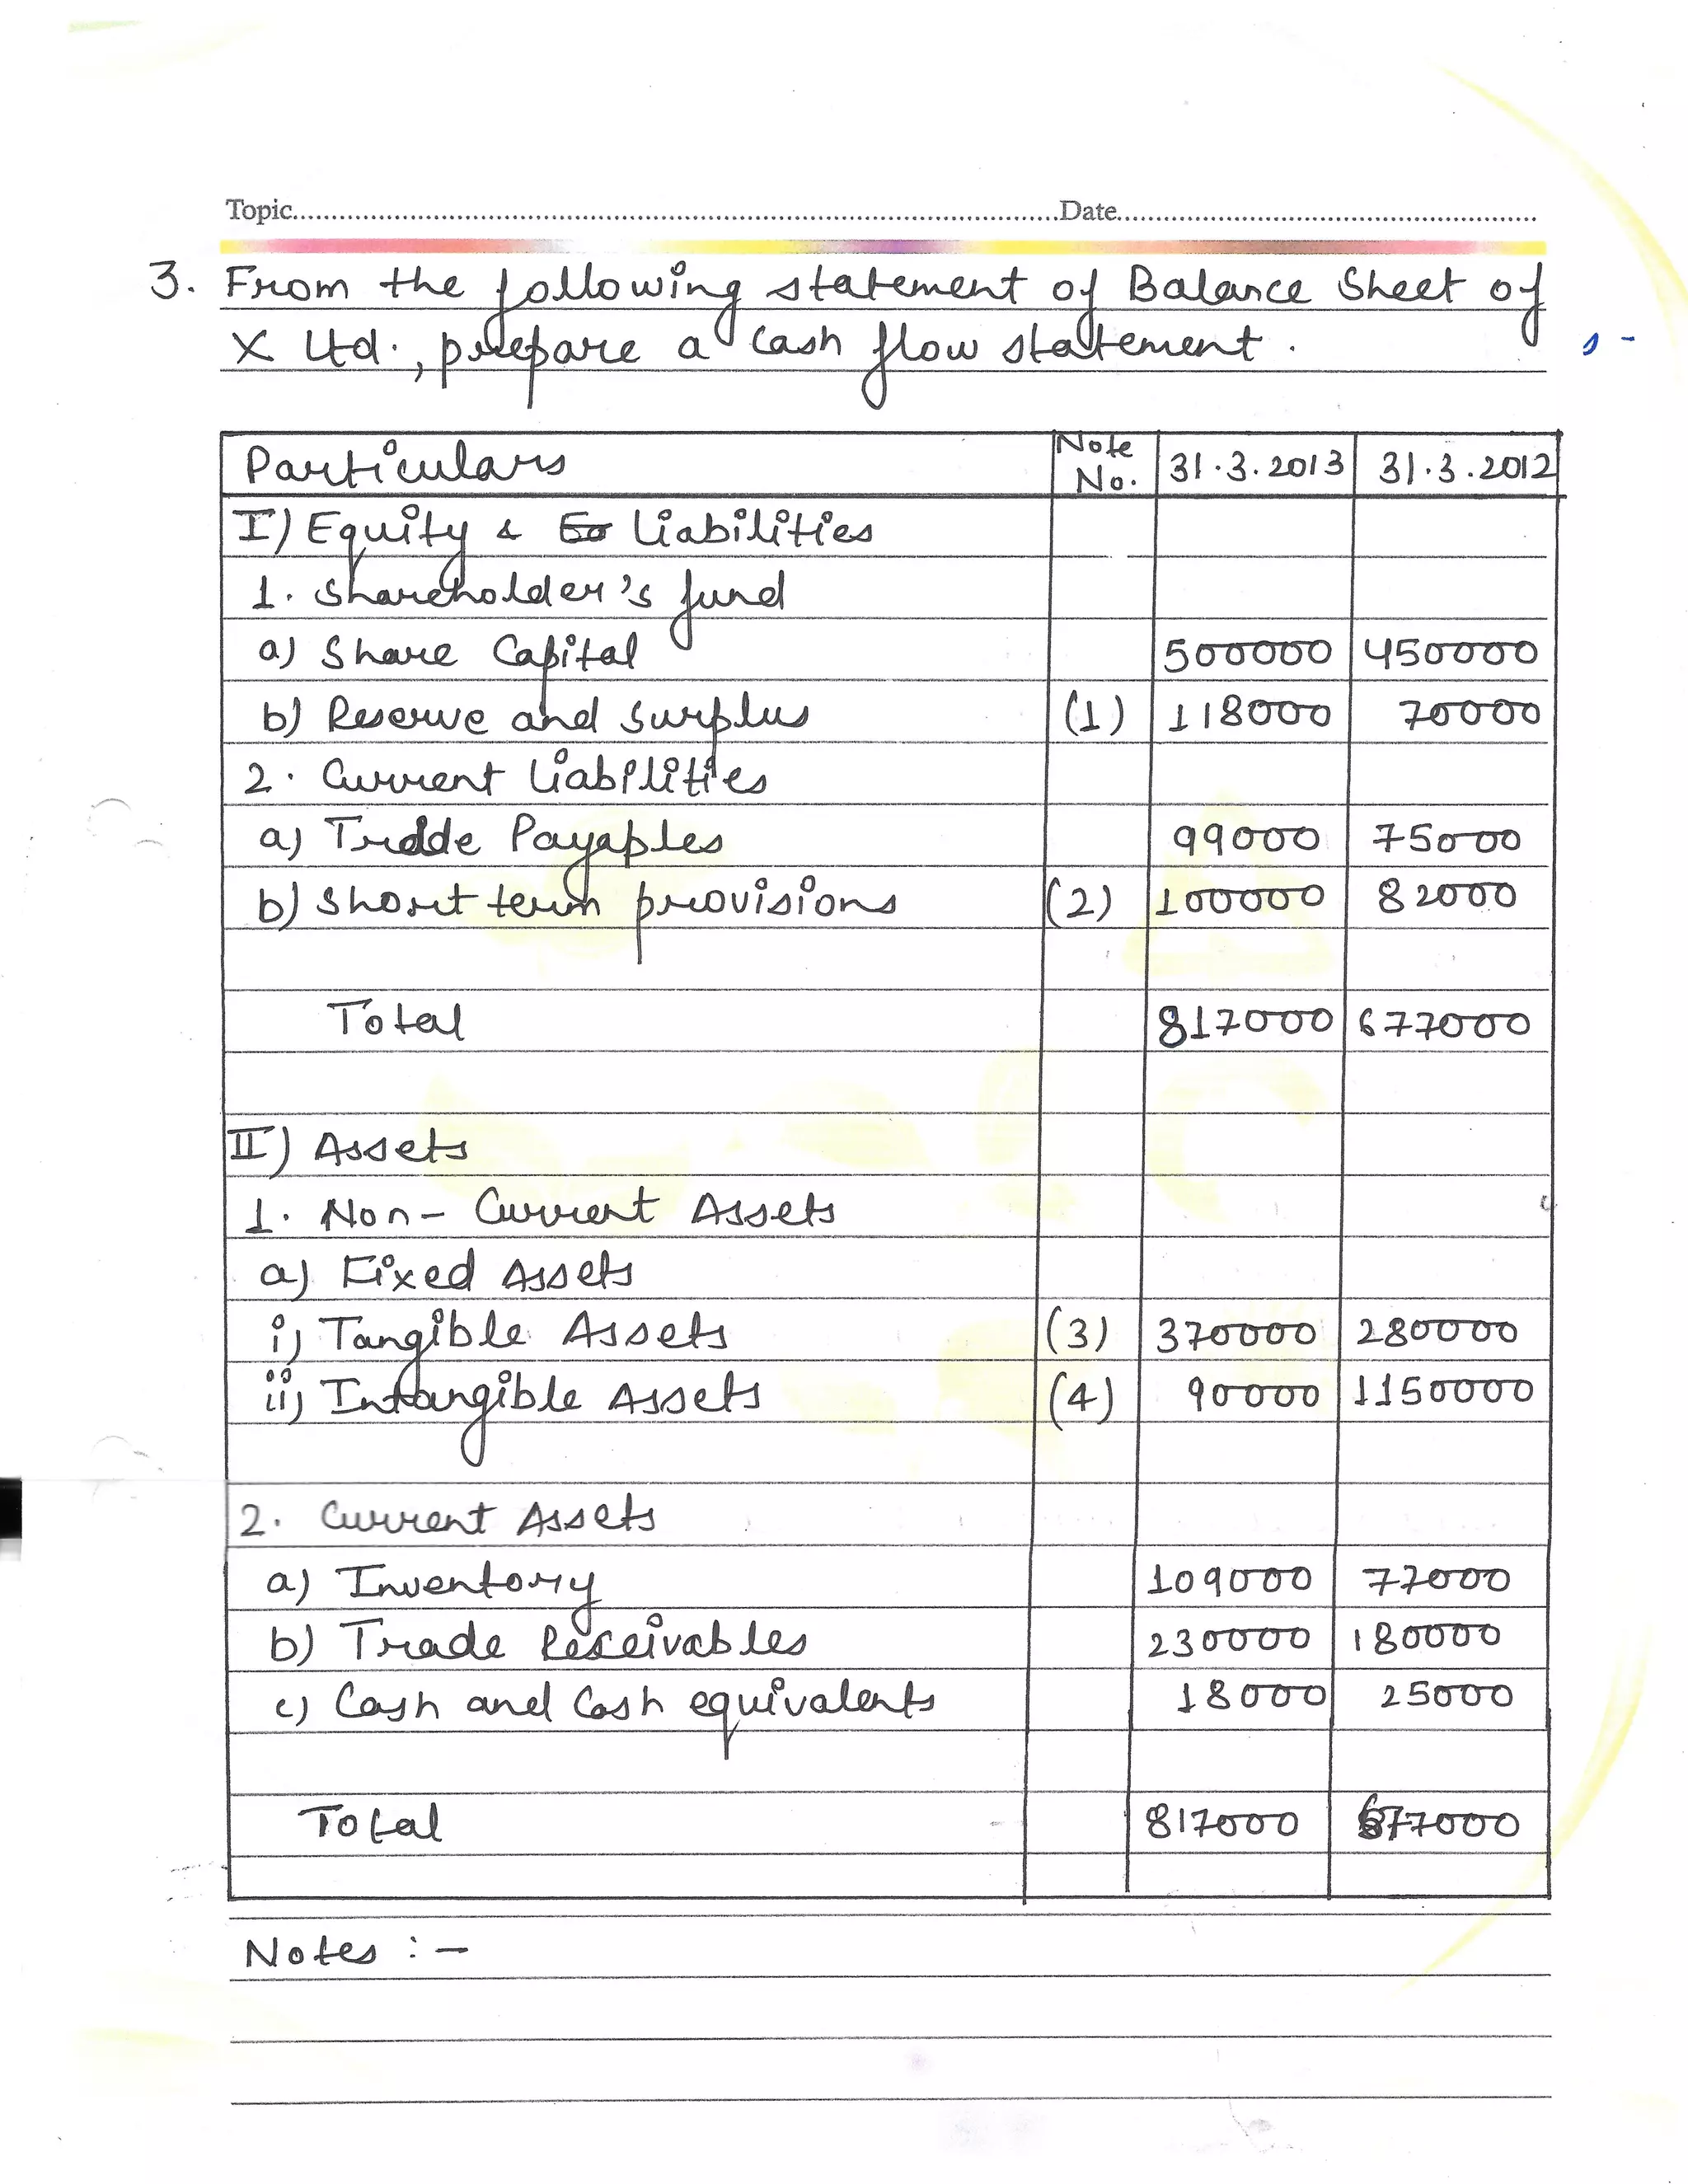 Topic..........Date..........
3. From the following statement of Balance Sheet of
X Ltd., prepare a cash flow statement.
Particulars Note No. 31.3.2013 31.3.2012
I) Equity & Liabilities
1. Shareholder's fund
a) Share Capital 500000 450000
b) Reserve and surplus (1) 118000 70000
2. Current Liabilities
a) Tradde Payables 99000 75000
b) Short term provisions (2) 100000 82000
Total 817000 677000
II) Assets
1. Non-Current Assets
a) Fixed Assets
i) Tangible Assets (3) 370000 280000
ii) Intangible Assets (4) 90000 1150000
2. Current Assets
a) Inventory 109000 77000
b) Trade Receivables 230000 180000
c) Cash and Cash equivalents 18000 25000
Total 817000 677000
Notes :-